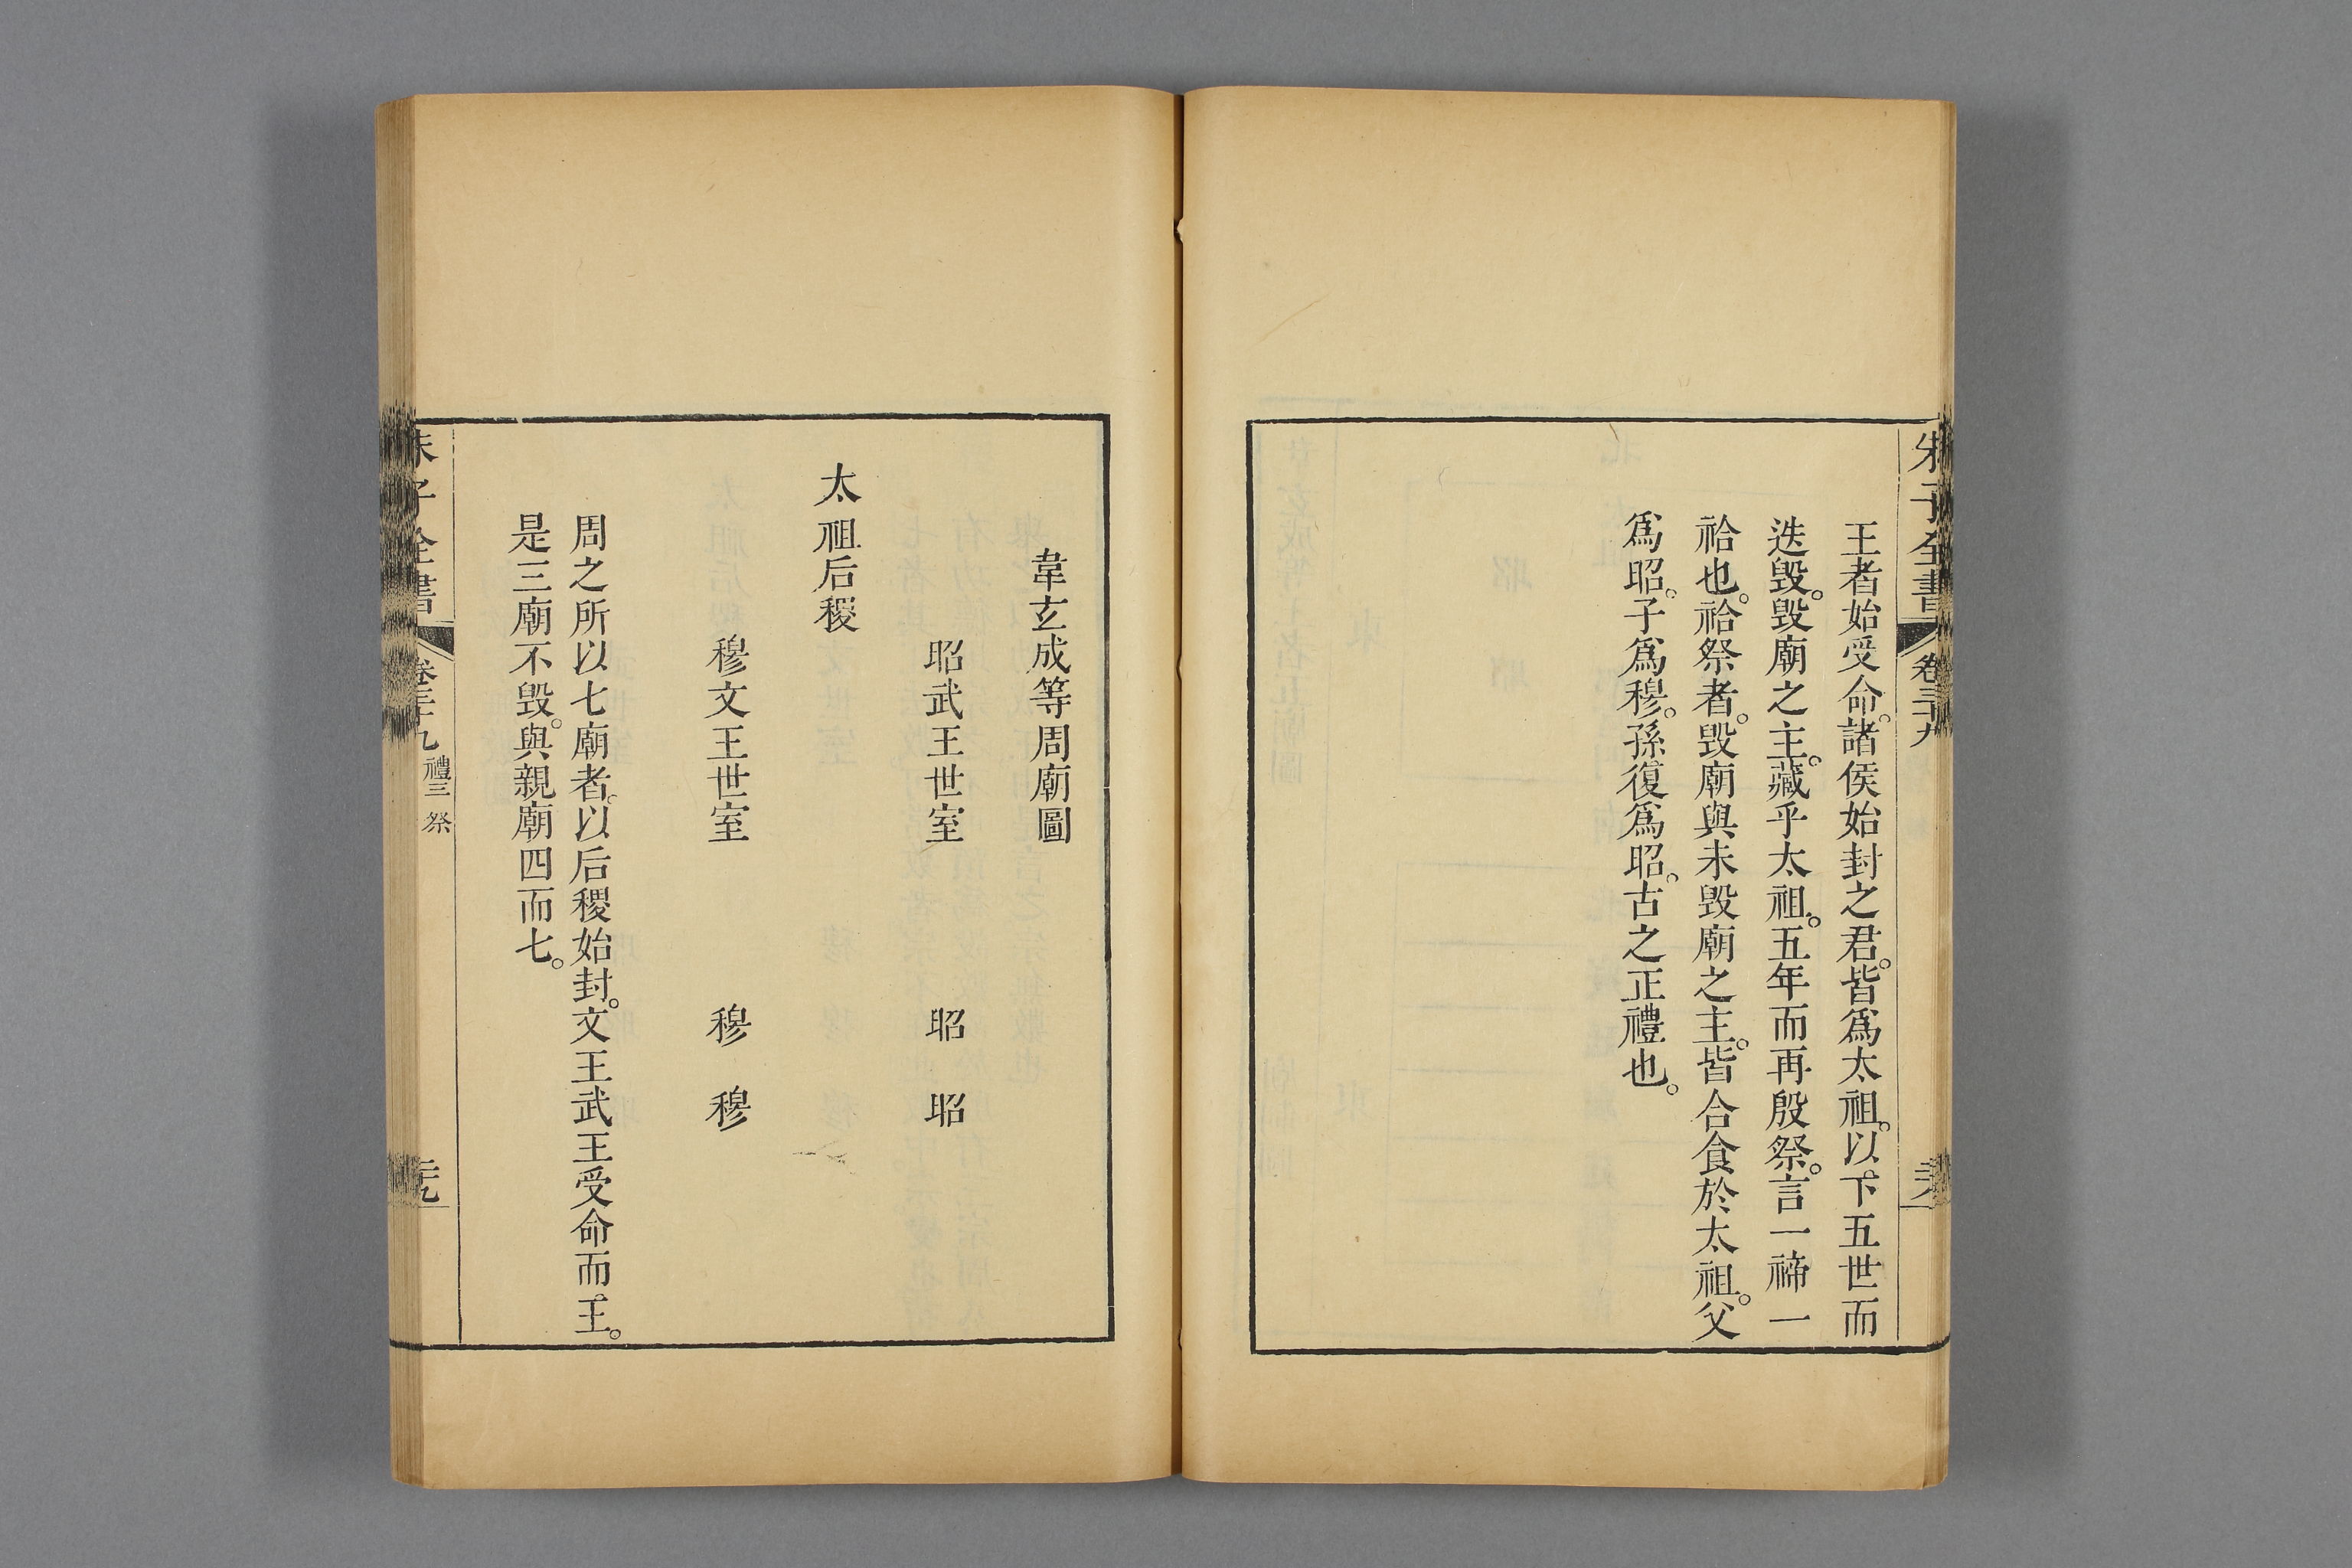 朱子全書 卷三十九
王者始受命。諸侯始封之君。皆爲太祖。以下五世而
迭毁。毁廟之主。藏乎太祖。五年而再殷祭。言一禘一
祫也。祫祭者。毁廟與未毁廟之主。皆合食於太祖。父
爲昭。子爲穆。孫復爲昭。古之正禮也。
韋玄成等周廟圖
昭武王世室 昭 昭
太祖后稷
穆文王世室 穆 穆
周之所以七廟者。以后稷始封。文王武王受命而王。
是三廟不毁。與親廟四而七。
朱子全書 卷三十九 禮三 祭